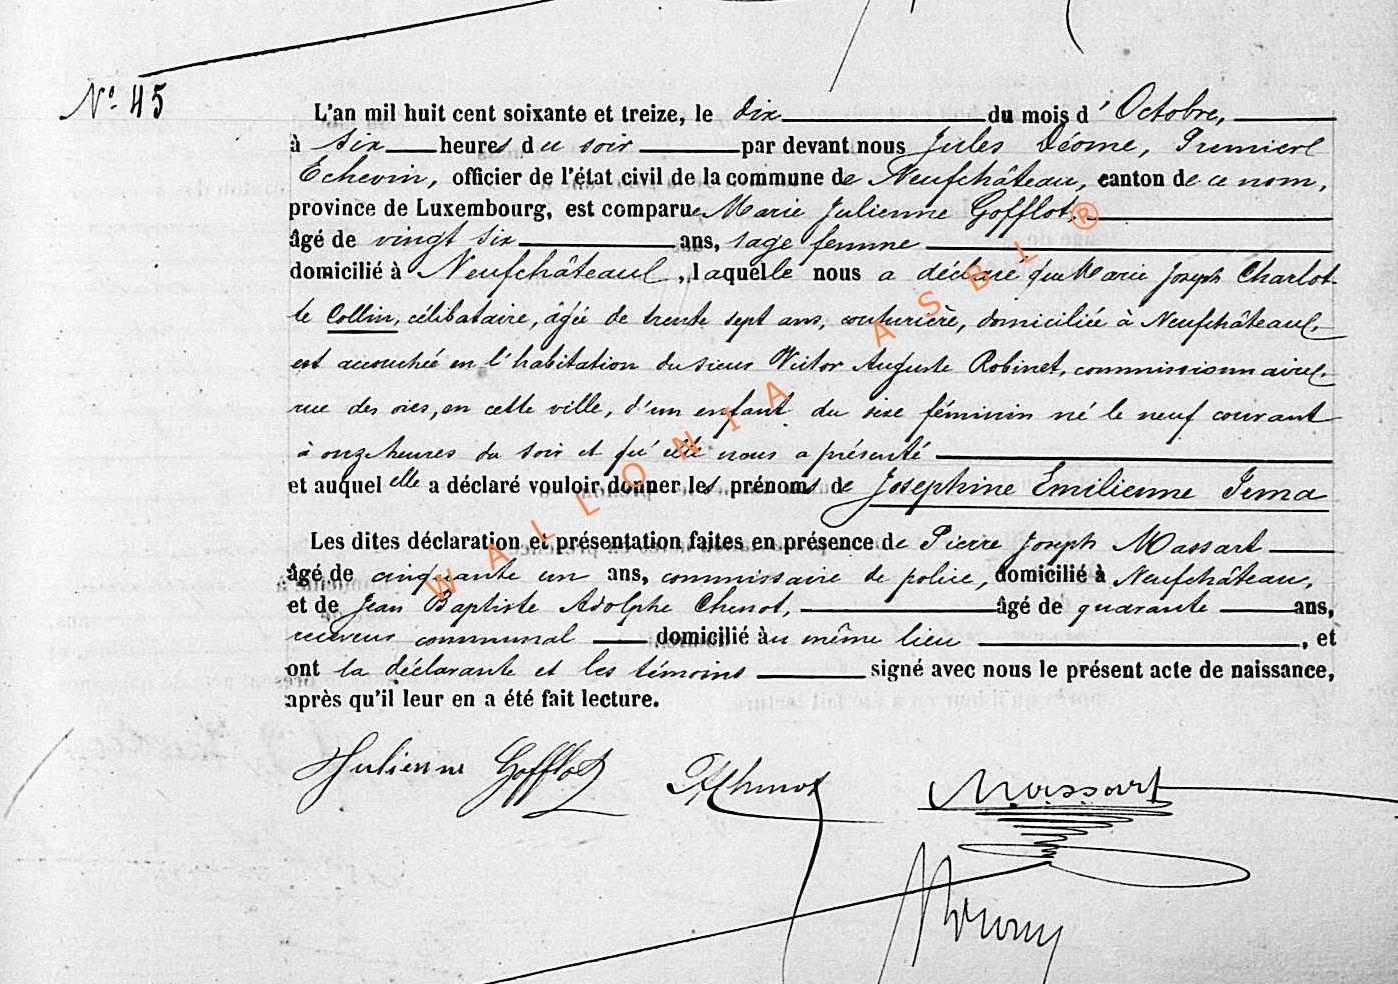 N° 45
L'an mil huit cent soixante et treize, le dix du mois d'Octobre,
à six heures du soir par devant nous Jules Déome, Premier
Echevin, officier de l'état civil de la commune de Neufchâteau, canton de ce nom,
province de Luxembourg, est comparue Marie Julienne Gofflot,
âgé de vingt six ans, sage femme
domicilié à Neufchâteau, laquelle nous a déclaré que Marie Joseph Charlot-
te Collin, célibataire, âgée de trente sept ans, couturière, domiciliée à Neufchâteau,
est accouchée en l'habitation du sieur Victor Auguste Robinet, commissionnaire,
rue des oies, en cette ville, d'un enfant du sexe féminin né le neuf courant
à onze heures du soir et qu'elle nous a présenté
et auquel elle a déclaré vouloir donner les prénoms de Josephine Emilienne Irma
Les dites déclaration et présentation faites en présence de Pierre Joseph Massart
âgé de cinquante un ans, commissaire de police, domicilié à Neufchâteau,
et de Jean Baptiste Adolphe Chenot, âgé de quarante ans,
receveur communal domicilié au même lieu, et
ont la déclarante et les témoins signé avec nous le présent acte de naissance,
après qu'il leur en a été fait lecture.
Julienne Gofflot Chenot Massart
WALLONIA ASBL ®